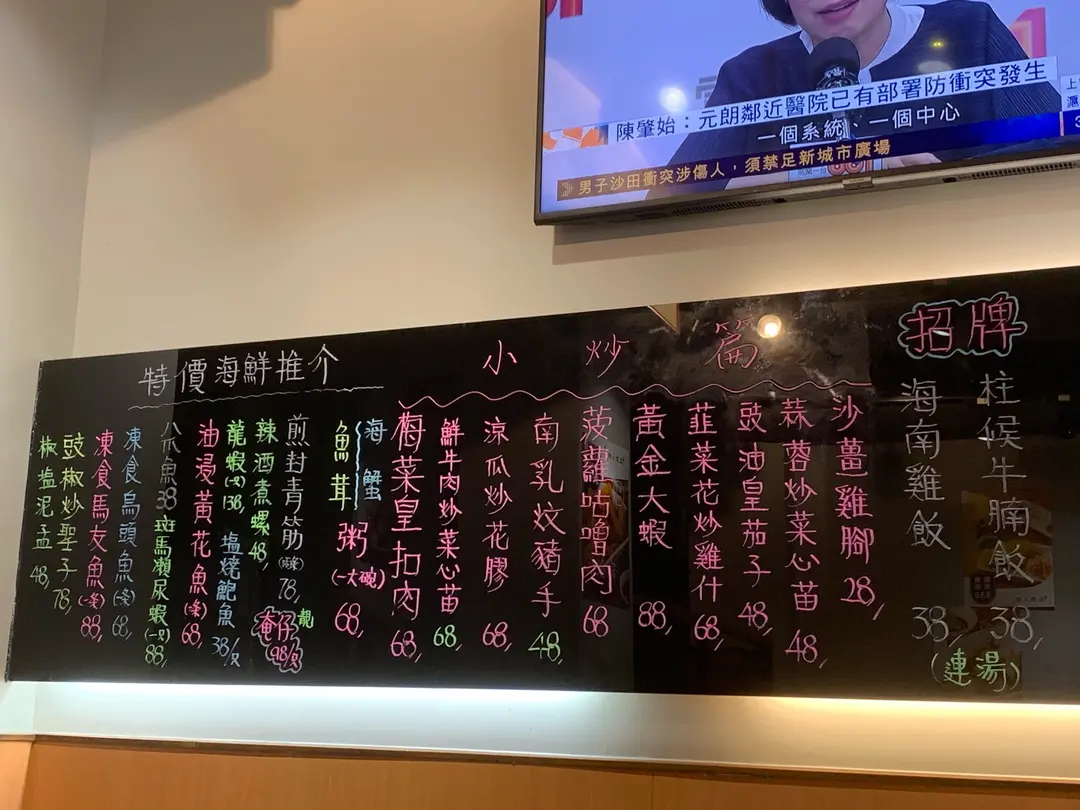 陳肇始：元朗鄰近醫院已有部署防衝突發生
一個系統、一個中心
男子沙田衝突涉傷人，須禁足新城市廣場
招牌
柱候牛腩飯 38,
海南雞飯 38,
(連湯)
小炒篇
沙薑雞腳 28,
蒜蓉炒菜心苗 48,
豉油皇茄子 48,
韮菜花炒雞什 68,
黃金大蝦 88,
菠蘿咕嚕肉 68
南乳炆豬手 48,
涼瓜炒花膠 68,
鮮牛肉炒菜心苗 68,
梅菜皇扣肉 68,
特價海鮮推介
海蟹
魚茸
粥(一大碗) 68,
煎封青筋 78,
龍
奄仔 98/只
辣酒煮螺 48,
龍蝦(一只) 138,
塩燒鮑魚 38/只
油浸黃花魚(一條) 68,
八爪魚 38
斑馬瀨尿蝦(一只) 88,
凍食烏頭魚(一条) 68,
凍食馬友魚(一条) 88,
豉椒炒聖子 78,
椒塩泥孟 48,